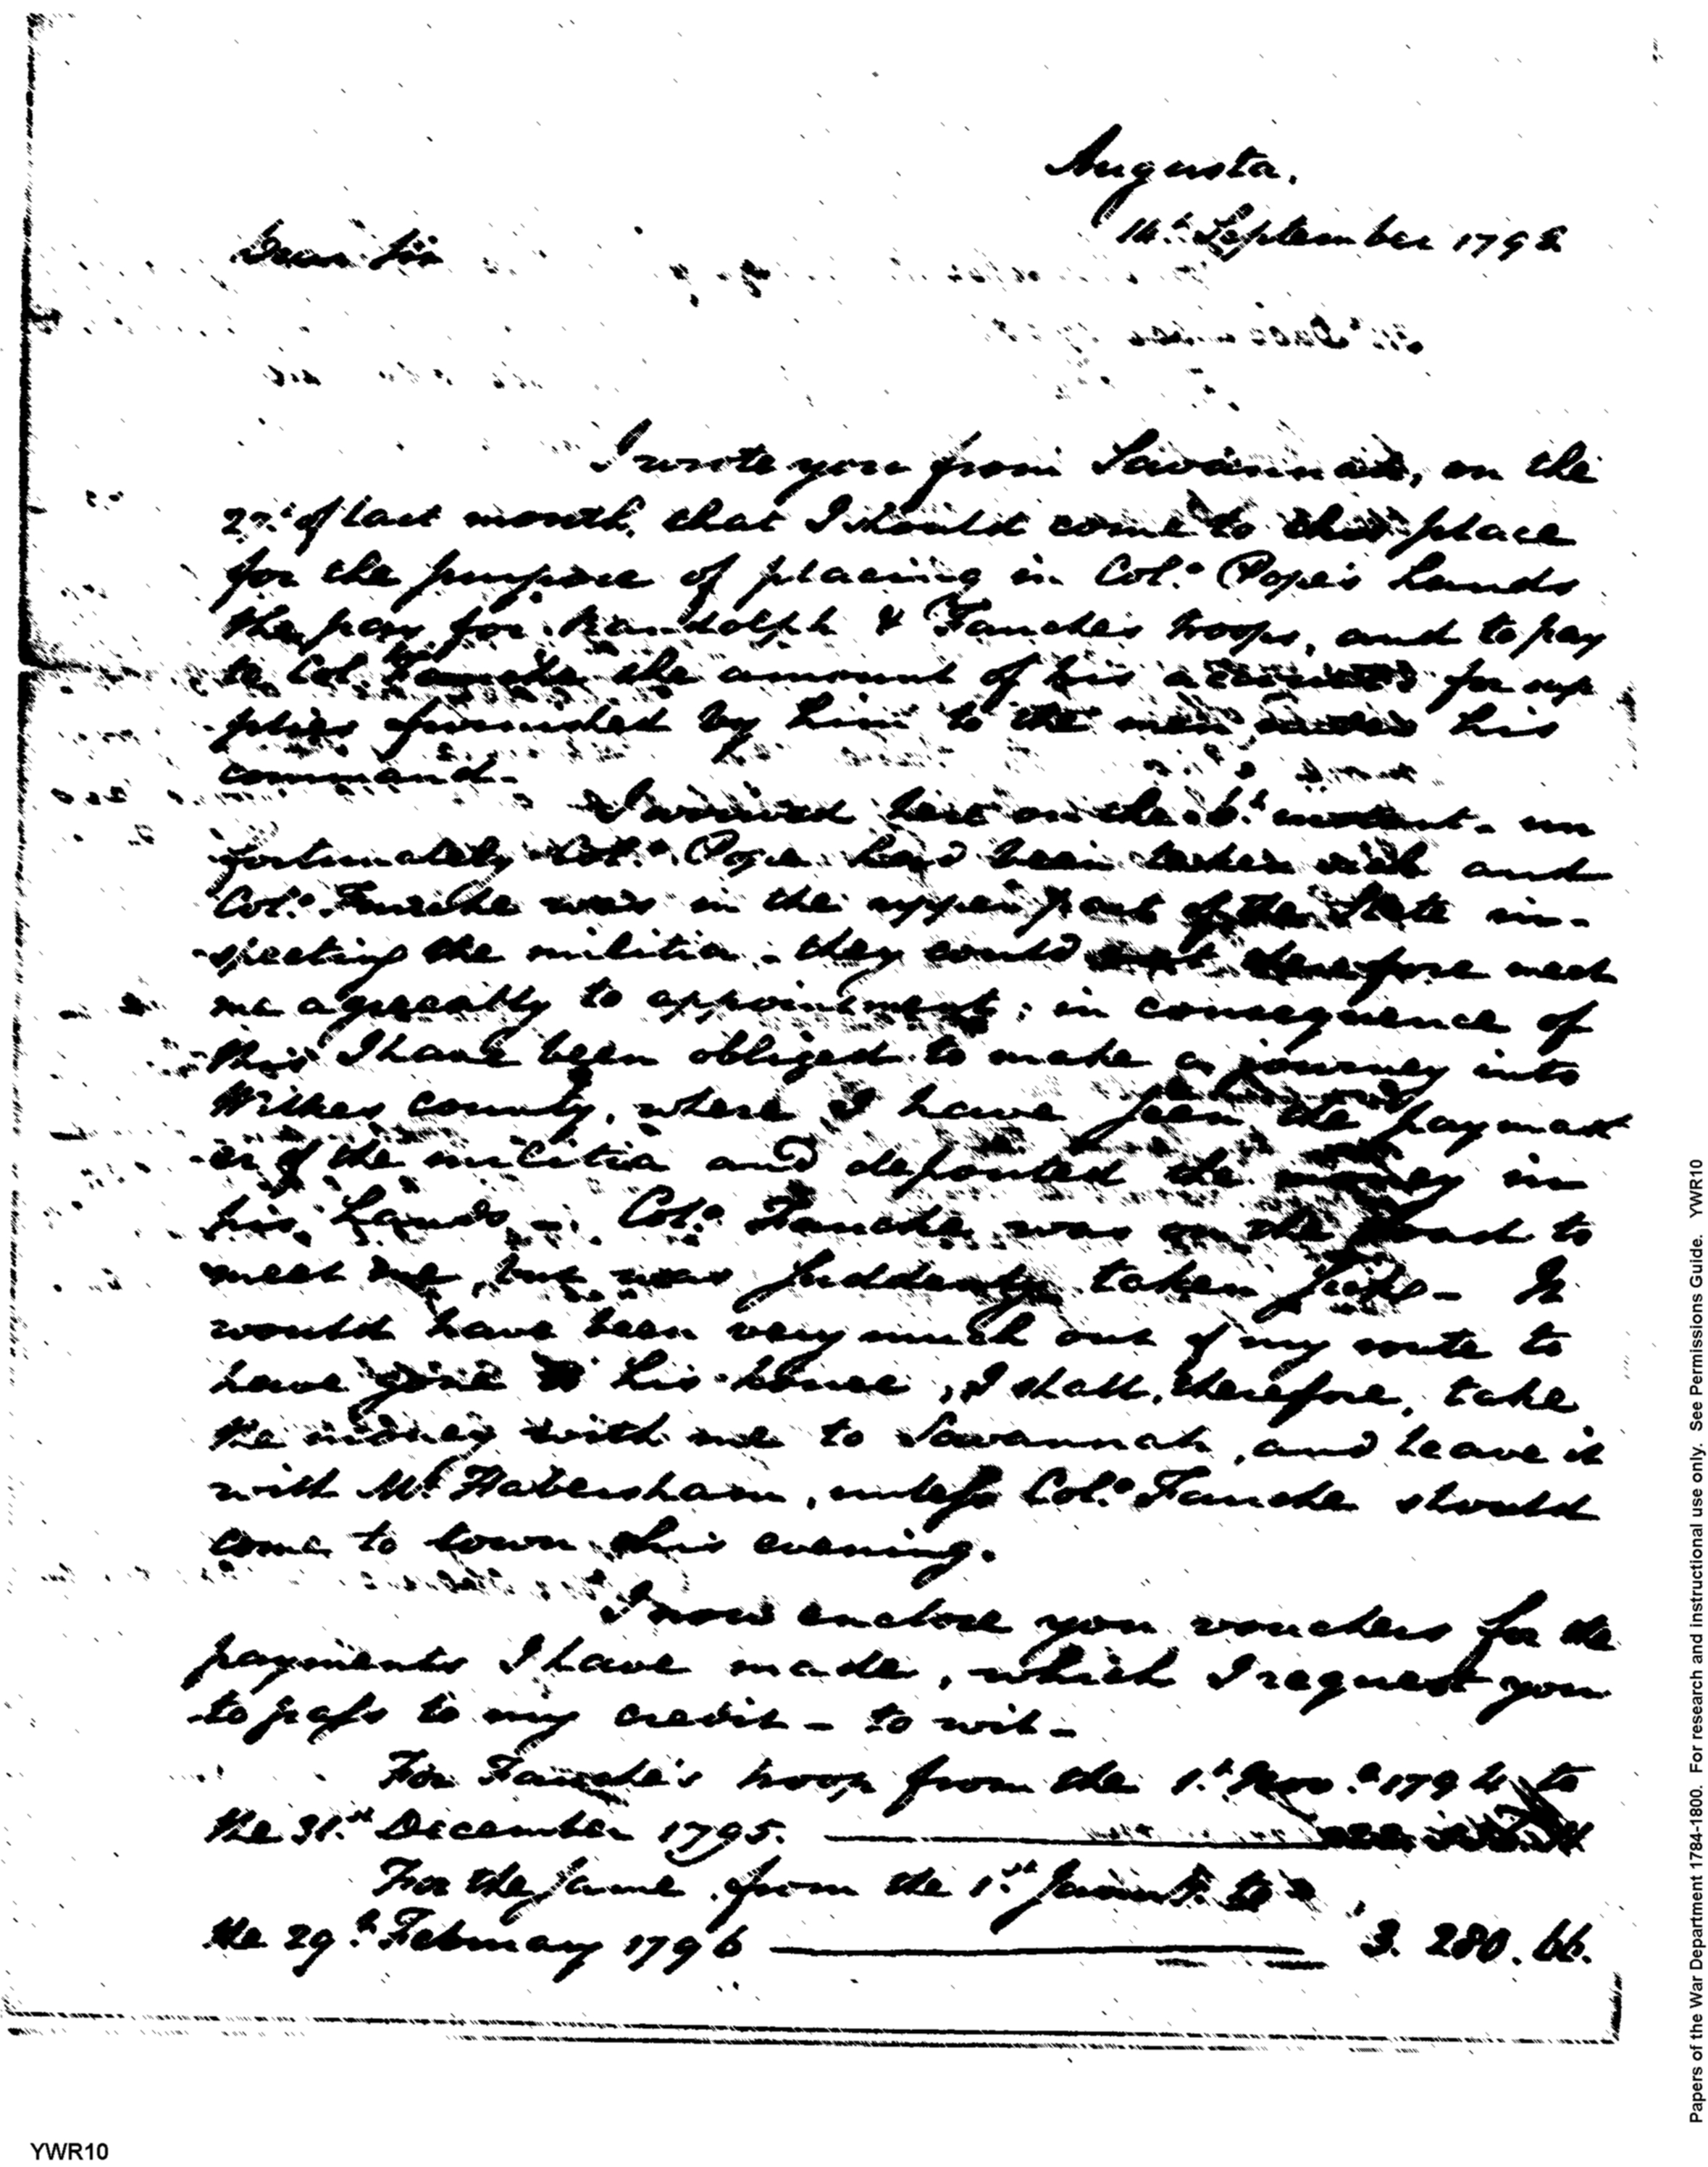 Augusta,
14th September 1798
Dear Sir
I wrote you from Savannah, on the
27th of last month, that I should come to this place
for the purpose of placing in Colo Pope's hands
the pay for Randolph & Fauche's troops, and to pay
to Col. Fauche the amount of his accounts for sup
plies furnished by him to the men under his
command.
I arrived here on the 6th instant - un
fortunately Colo Pope had been taken sick and
Colo Fauche was in the upper part of the State in-
specting the militia - they could not therefore meet
me agreeably to appointment; in consequence of
this I have been obliged to make a journey into
Wilkes county, where I have seen the paymast
er of the militia and deposited the money in
his hands - Colo Fauche was on the road to
meet me, but was suddenly taken sick - It
would have been very much out of my route to
have gone to his house, I shall, therefore, take
the money with me to Savannah, and leave it
with Mr Habersham, unless Colo Fauche should
come to town this evening.
I now enclose you vouchers for the
payments I have made, which I request you
to pass to my credit - to wit -
For Fauche's troop from the 1st Novr 1794 to
the 31st December 1795.
For the same from the 1st to
the 29th February 1796 3.280.66.
YWR10
Papers of the War Department 1784-1800. For research and instructional use only. See Permissions Guide. YWR10